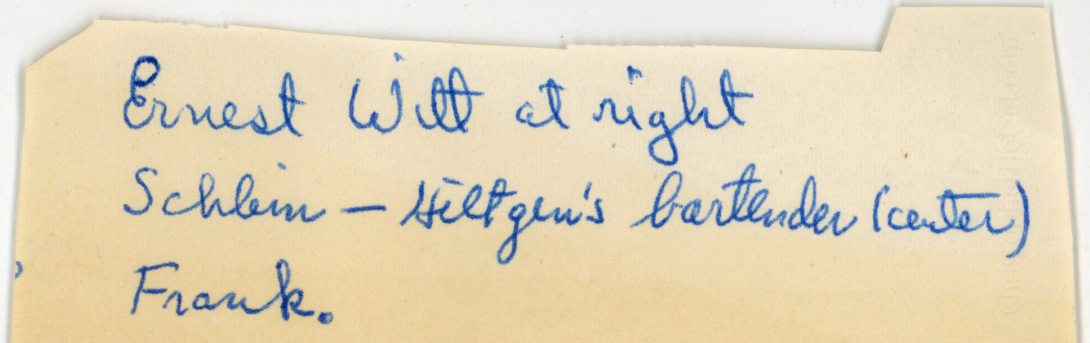 Ernest Witt at right
Schlein — Hiltgen's bartender (center)
Frank.